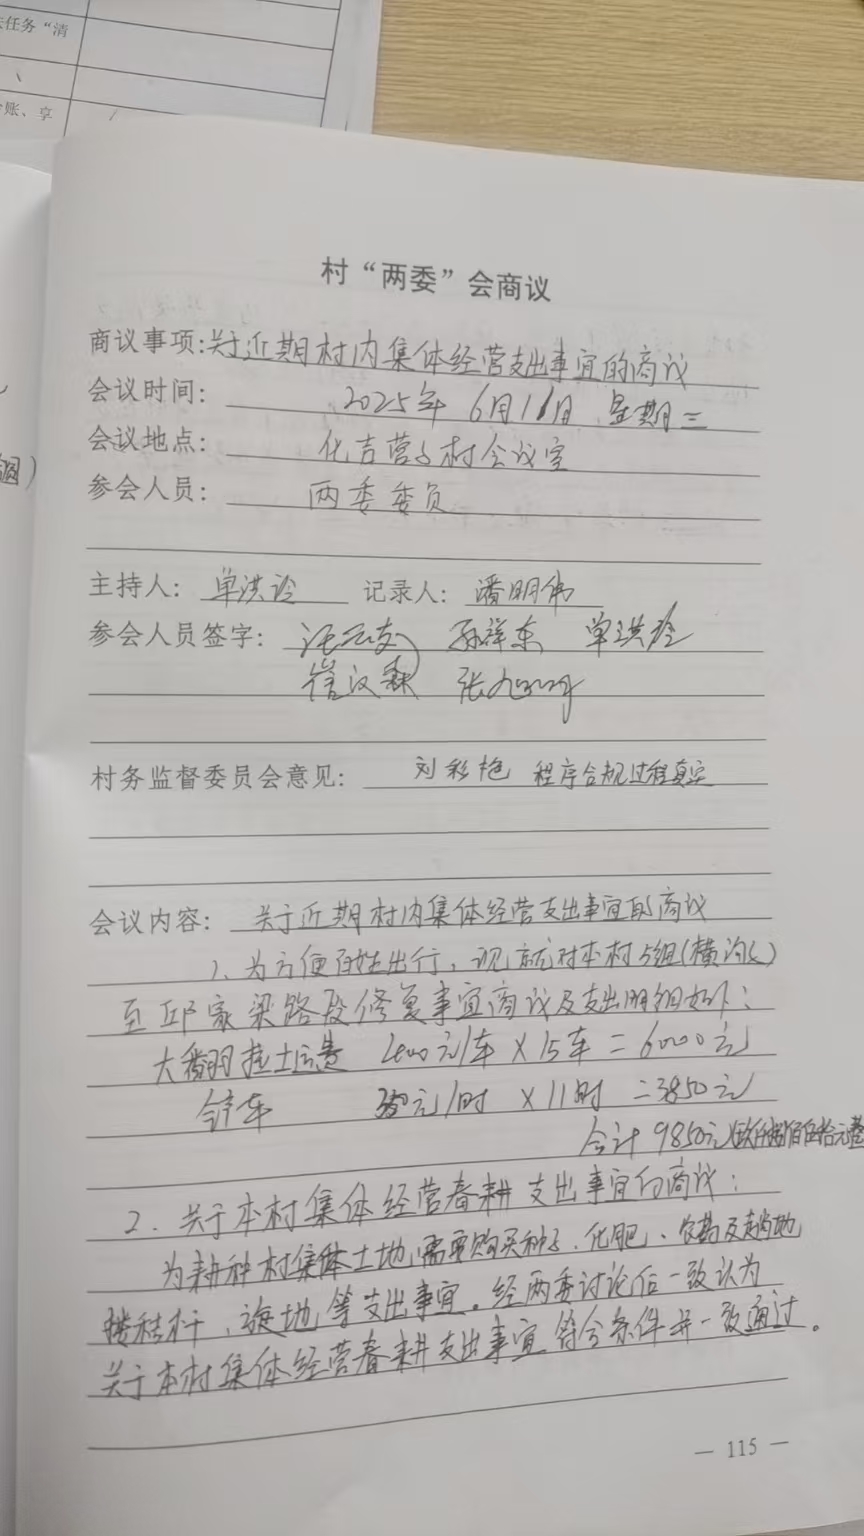 任务“清
账、享
村“两委”会商议
商议事项:关于近期村内集体经营支出事宜的商议
会议时间: 2025年 6月18日 星期三
会议地点: 化吉营子村会议室
参会人员: 两委委员
主持人: 单洪玲 记录人: 潘明伟
参会人员签字: 孙祥东 单洪玲
崔汉森
村务监督委员会意见: 刘彩艳 程序合规过程真实
会议内容: 关于近期村内集体经营支出事宜的商议
1、为方便百姓出行,现就对本村5组(横沟子)
至邱家梁路段修复事宜商议及支出明细如下:
大翻拉土运费 400元/车 × 15车 = 6000元
铲车 350元/时 × 11时 = 3850元
合计 9850元(玖仟捌佰伍拾元整
2. 关于本村集体经营春耕支出事宜的商议:
为耕种村集体土地,需要购买种子、化肥、农药及趟地
搂秸秆、旋地等支出事宜。经两委讨论后一致认为
关于本村集体经营春耕支出事宜符合条件并一致通过。
— 115 —